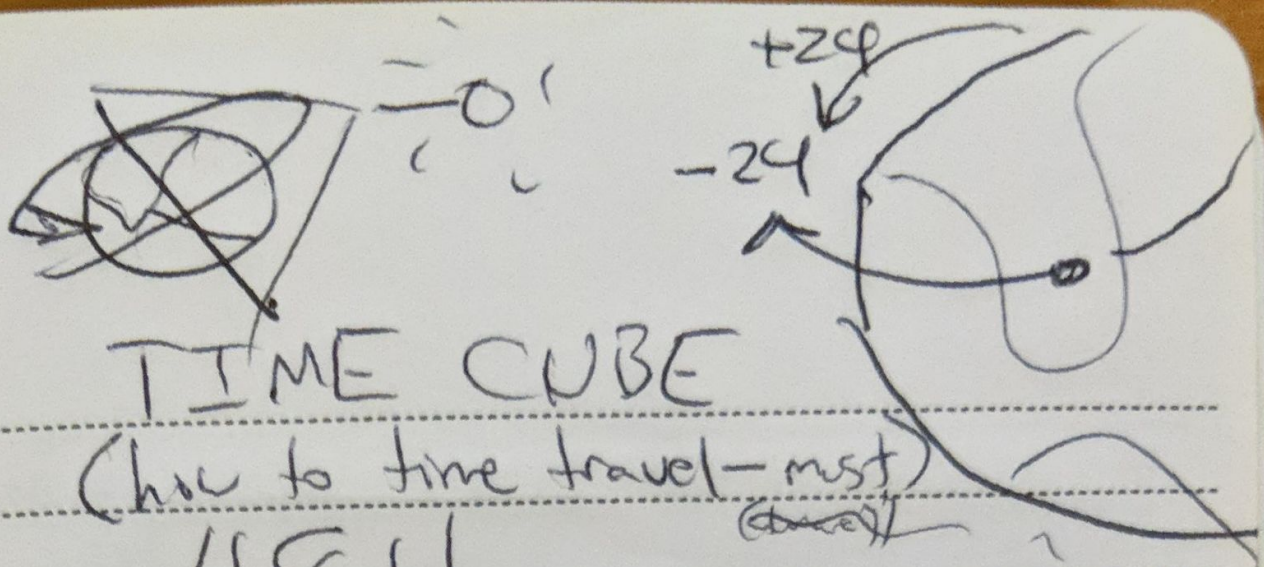 +24
-24
TIME CUBE
(how to time travel - mst)